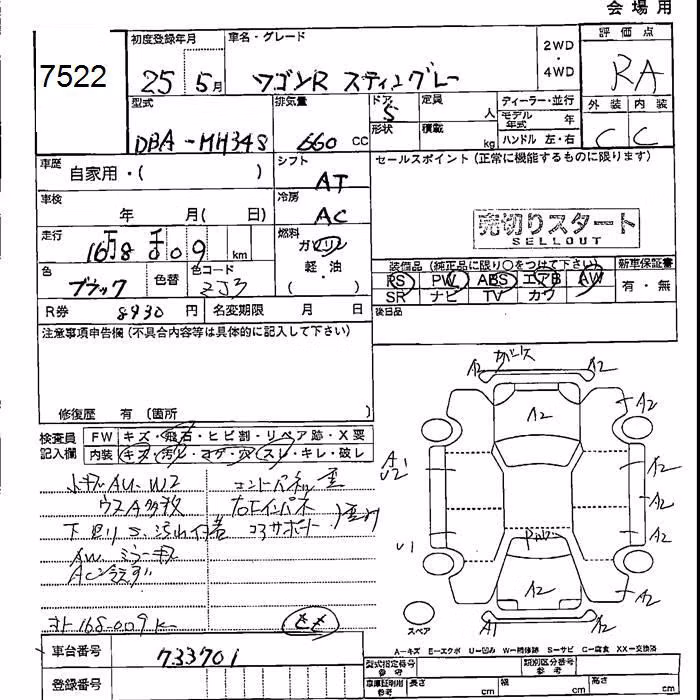 会場用
7522
初度登録年月
25 5月
車名・グレード
ワゴンR スティングレー
2WD
・
4WD
評価点
RA
外装 内装
C C
型式
DBA-MH34S
排気量
660 cc
ドア
5
形状
定員 人
積載 kg
ディーラー・並行
モデル年式 年
ハンドル 左・右
車歴
自家用・( )
シフト
AT
セールスポイント(正常に機能するものに限ります)
車検
年 月( 日)
冷房
AC
売切りスタート
SELLOUT
走行
16万8千009 km
燃料
ガソリン
軽・油
( )
色
ブラック
色替
色コード
ZJ3
装備品(純正品に限り○をつけて下さい)
PS PW ABS エアB AW
SR ナビ TV カワ
新車保証書
有・無
R券 8930 円
名変期限 月 日
後日品
注意事項申告欄(不具合内容等は具体的に記入して下さい)
修復歴 有(箇所 )
検査員
記入欄
FW キズ・飛石・ヒビ割・リペア跡・X要
内装 キズ・汚レ・コゲ・穴・スレ・キレ・破レ
小キズAU、W2
ウスA多数
下回りS、汚れ付着
AW
コアサポート
メーター168009K
A2 A2
A2 A2
A1
U2 A2
A2
U1 A2
A2 A2
A1 A2
スペア
A-キズ E-エクボ U-凹み W-補修跡 S-サビ C-腐食 XX-交換済
車台番号
733701
登録番号
型式指定番号
参考
類別区分番号
参考
車庫証明用
参考
長さ cm
幅 cm
高さ cm